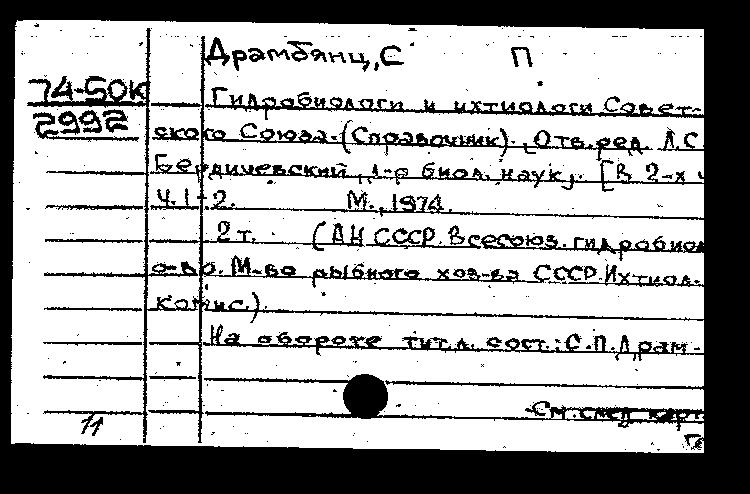 Драмбянц, С П
74-50К
2992
Гидробиологи и ихтиологи Совет-
ского Союза. (Справочник). [Отв. ред. Л.С.
Бердичевский, д-р биол. наук]. [В 2-х ч
Ч. 1-2. М., 1974.
2 т. (АН СССР. Всесоюз. гидробиол
о-во. М-во рыбного хоз-ва СССР. Ихтиол.
комис.).
На обороте тит. л. сост.: С.П. Драм-
См. след карт.
11